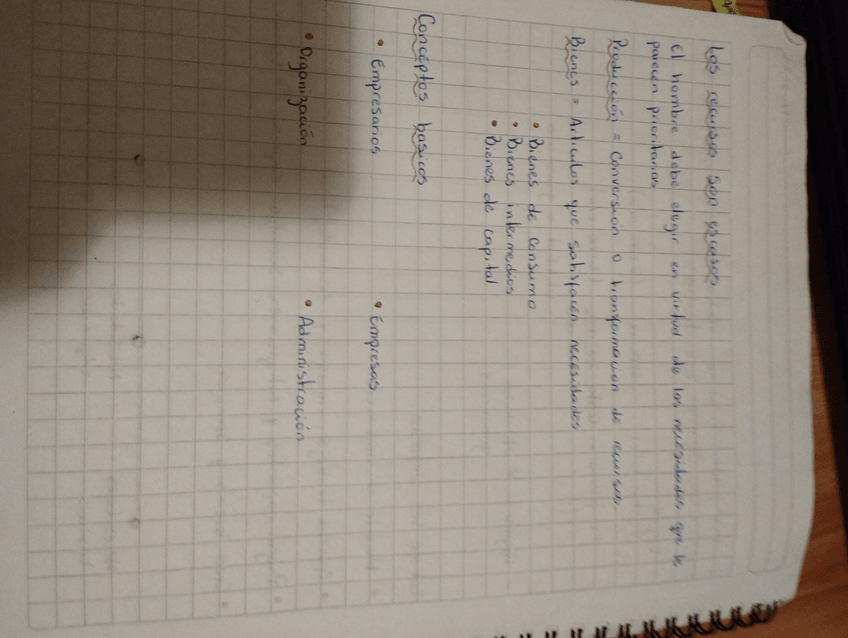 Los recursos son escasos
El hombre debe elegir en virtud de las necesidades que le
parecen prioritarias
Producción = Conversión o transformacion de recursos.
Bienes = Articulos que satisfacen necesidades
• Bienes de Consumo
• Bienes intermedios
• Bienes de capital
Conceptos basicos
• Empresarios • Empresas
• Organización • Administración